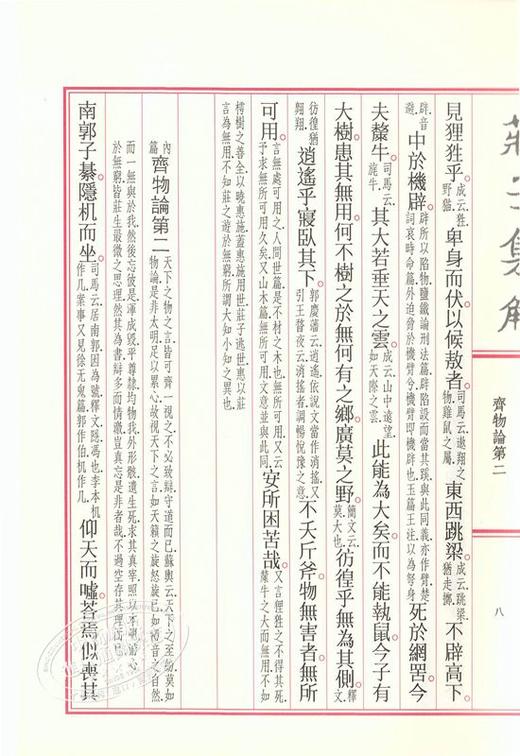 莊子集解
齊物論第二
八
見狸狌乎成云狌野貓卑身而伏以候敖者司馬云遨翔之物雞鼠之屬東西跳梁成云跳梁猶走擲不辟高下
辟音避中於機辟辟所以陷物鹽鐵論刑法篇辟陷設而當其蹊與此同義亦作臂楚詞哀時命篇外迫脅於機臂兮機臂即機辟也玉篇王注以為弩身死於網罟今
夫斄牛司馬云旄牛其大若垂天之雲成云山中遠望如天際之雲此能為大矣而不能執鼠今子有
大樹患其無用何不樹之於無何有之鄉廣莫之野簡文云莫大也彷徨乎無為其側釋文
彷徨猶翱翔逍遙乎寢臥其下郭慶藩云逍遙依說文當作消搖又引王瞀夜云消搖者調暢悅豫之意不夭斤斧物無害者無所
可用言無處可用之人間世篇是不材之木也無所可用又云予求無所可用久矣又山木篇無所可用文意並與此同安所困苦哉又言狸狌之不得其死斄牛之大而無用不如
樗樹之善全以曉惠施蓋惠施用世莊子逃世惠以莊言為無用不知莊之遊於無窮所謂大知小知之異也
內篇齊物論第二天下之物之言皆可齊一視之不必致辯守道而已蘇輿云天下之至紛莫如物論是非太明足以累心故視天下之言如天籟之旋怒旋已如鷇音之自然
而一無與於我然後忘彼是渾成毀平尊隸均物我外形骸遺生死求其真宰照以本明游心於無窮皆莊生最微之思理然其為書辯多而情激豈真忘是非者哉不過空存其理而已
南郭子綦隱机而坐司馬云居南郭因為號釋文隱馮也李本机作几案事又見徐无鬼篇郭作伯机作几仰天而噓荅焉似喪其